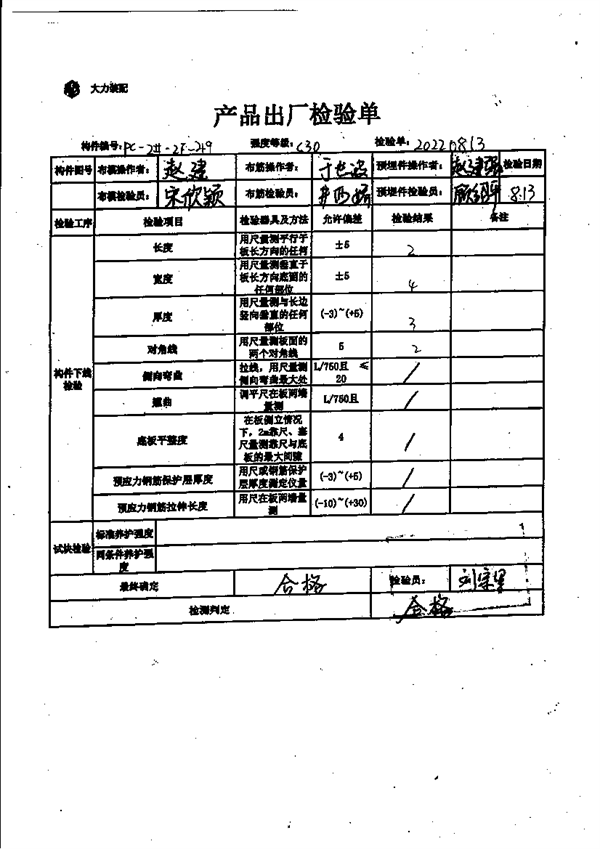 大力装配
产品出厂检验单
构件编号: PC-2#-2F-219 强度等级: C30 检验单: 20220813
构件图号 布模操作者: 赵建 布筋操作者: 预埋件操作者: 赵建强 检验日期
布模检验员: 宋欣颖 布筋检验员: 预埋件检验员: 8.13
检验工序 检验项目 检验器具及方法 允许偏差 检验结果 备注
构件下线检验
长度 用尺量测平行于板长方向的任何 ±5 2
宽度 用尺量测垂直于板长方向底面的任何部位 ±5 4
厚度 用尺量测与长边竖向垂直的任何部位 (-3)~(+5) 3
对角线 用尺量测板面的两个对角线 5 2
侧向弯曲 拉线，用尺量测侧向弯曲最大处 L/750且 ≤20 /
翘曲 调平尺在板两端量测 L/750且 /
底板平整度 在板侧立情况下，2m靠尺、塞尺量测靠尺与底板的最大间隙 4 /
预应力钢筋保护层厚度 用尺或钢筋保护层厚度测定仪量 (-3)~(+5) /
预应力钢筋拉伸长度 用尺在板两端量测 (-10)~(+30) /
试块检验 标准养护强度
同条件养护强度
最终确定 合格 检验员:
检测判定 合格